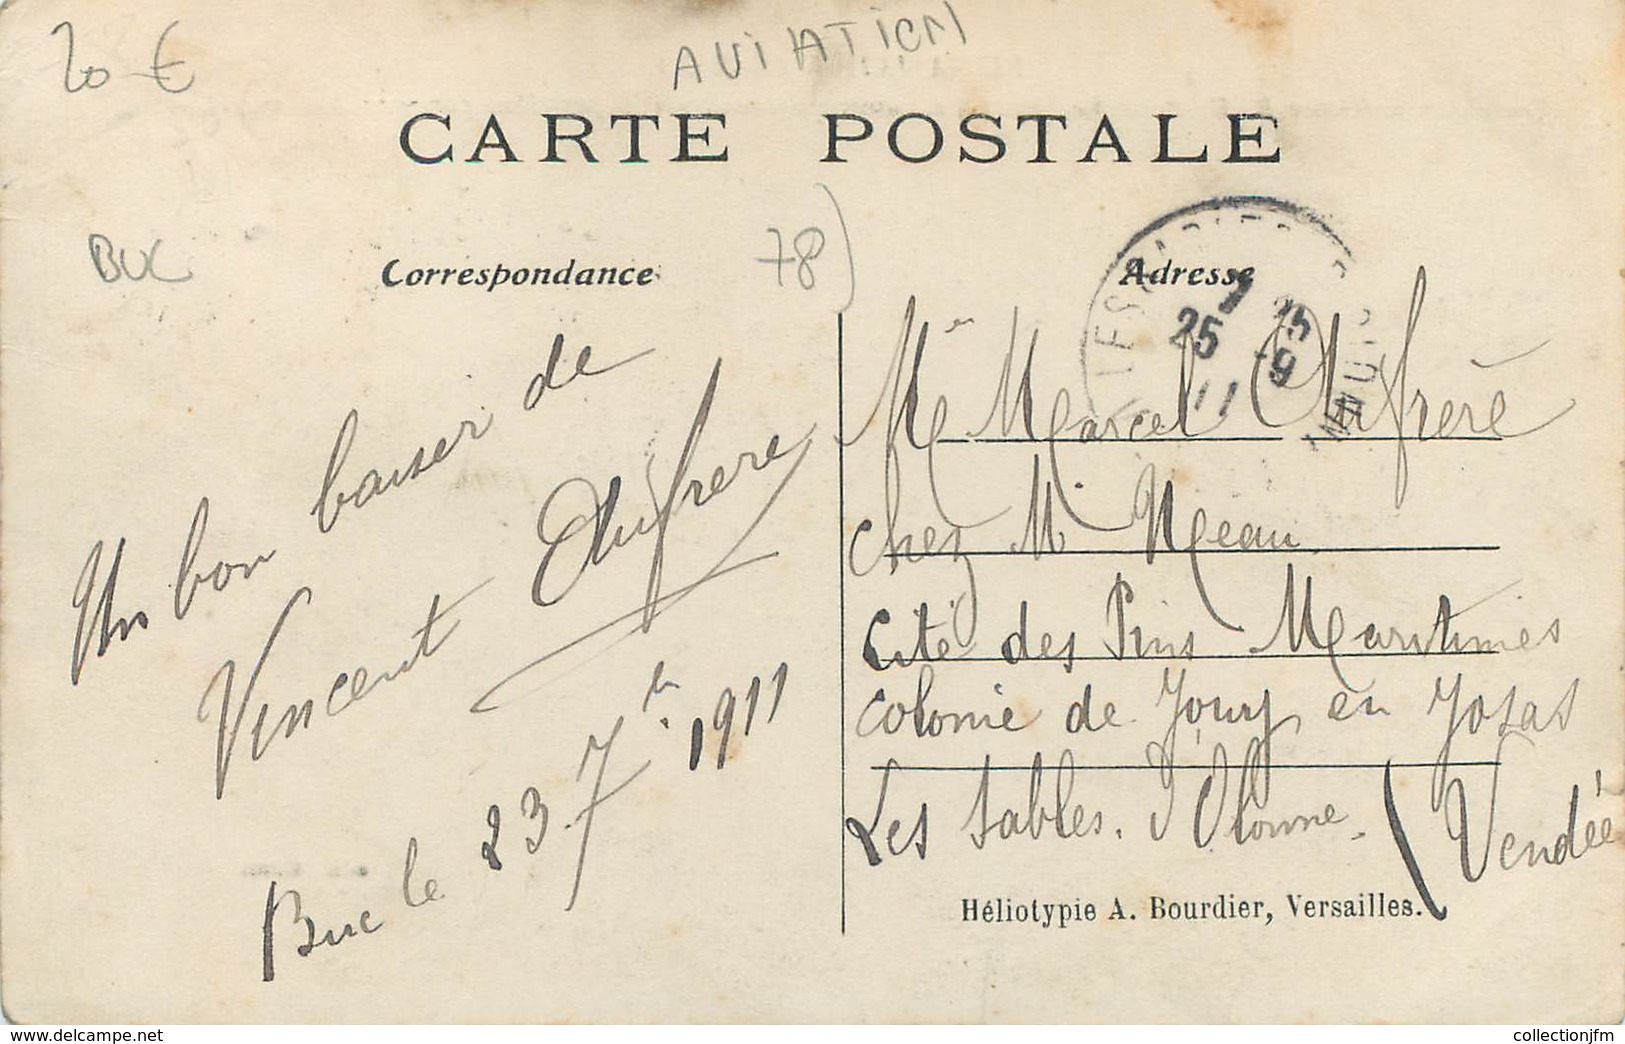 20 €
AVIATION
CARTE POSTALE
BUC
Correspondance
78)
Adresse
25
25 -9
11
Un bon baiser de
Vincent Dufrere
Buc le 23 7bre 1911
Mr Marcel Dufrère
chez Mr Neau
Cité des Pins Maritimes
colonie de Jouy en Josas
Les Sables. d'Olonne. (Vendée
Héliotypie A. Bourdier, Versailles.
delcampe.net
collectionjfm